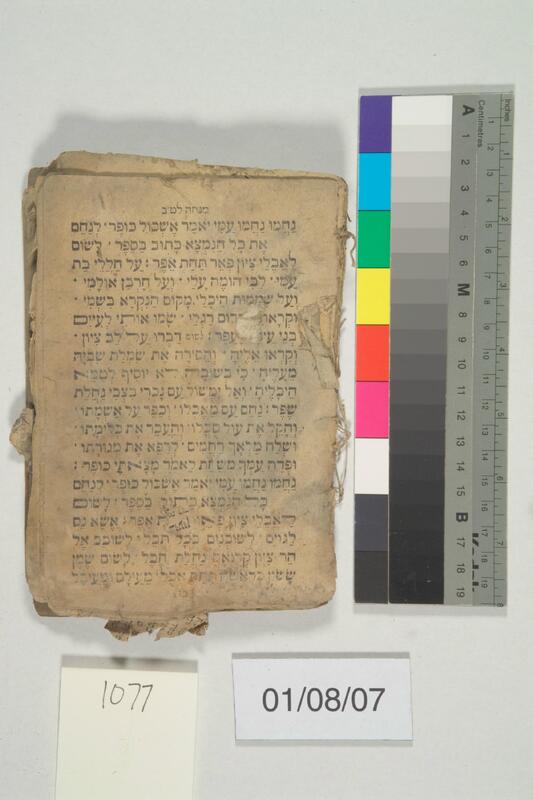 מנחה לט׳ב
נַחֲמוּ נַחֲמוּ עַמִּי יֹאמַר אֶשְׁכּוֹל כּוֹפֶר׳ לְנַחֵם
אֶת כָּל הַנִּמְצָא כָּתוּב בַּסֵּפֶר׳ לָשׂוּם
לַאֲבֵלֵי צִיּוֹן פְּאֵר תַּחַת אֵפֶר: עַל חַלְלֵי בַת
עַמִּי׳ לִבִּי הוֹמֶה עָלַי׳ וְעַל חֻרְבַּן אוּלָמִי׳
וְעַל שַׁמְמוּת הֵיכָלִי׳ מָקוֹם הַנִּקְרָא בִשְׁמִי׳
רַגְלַי׳ שָׂמוּ אוֹתִי לְעִיִּים
בְּנֵי דַּבְּרוּ עַל לֵב צִיּוֹן׳
וְקִרְאוּ אֵלֶיהָ׳ וְהֵסִירָה אֶת שִׂמְלַת שִׁבְיָהּ
מֵעָלֶיהָ׳ כִּי לֹא יוֹסִיף לְטַמֵּא
הֵיכָלֶיהָ׳ וְאַל יִמְשׁוֹל עַם נָכְרִי בִּצְבִי נַחֲלַת
שֶׁפֶר: נַחֵם עַם מֵאֶבְלוֹ׳ וְכַפֵּר עַל אַשְׁמָתוֹ׳
וְהָקֵל אֶת עוֹל סִבְלוֹ׳ וְהַעֲבֵר אֶת כְּלִמָּתוֹ׳
וּשְׁלַח מַלְאַךְ רַחֲמִים׳ לִרְפֹּא אֶת
וּפְדֵה עַמְּךָ מִשַּׁחַת לֵאמֹר מָצָאתִי כוֹפֶר:
נַחֲמוּ נַחֲמוּ עַמִּי יֹאמַר אֶשְׁכּוֹל כּוֹפֶר׳ לְנַחֵם
כָּל הַנִּמְצָא כָּתוּב בַּסֵּפֶר: לָשׂוּם
לַאֲבֵלֵי צִיּוֹן פְּאֵר תַּחַת אֵפֶר: אֶשָּׂא נֵס
לַגּוֹיִם׳ לְשׁוֹכְנִים בְּכָל תֵּבֵל׳ לְשׁוֹבֵב אֶל
הַר צִיּוֹן נַחֲלַת חֶבֶל׳ לָשׂוּם שֶׁמֶן
שָׂשׂוֹן תַּחַת אֵבֶל׳
A
M
B
Centimetres
Inches
1 2 3 4 5 6 7 8 9 10 11 12 13 14 15 16 17 18 19
1 2 3 4 5 6 7 8
1077
01/08/07